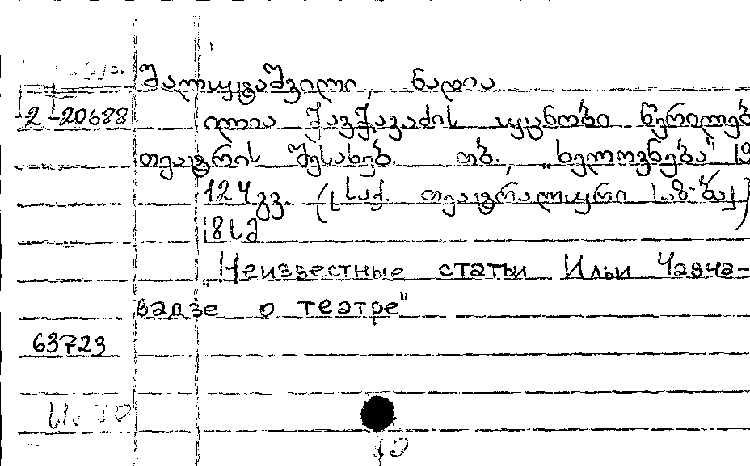 შალუტაშვილი, ნადია
2-20688 ილია ჭავჭავაძის უცნობი წერილებ
თეატრის შესახებ. თბ., „ხელოვნება" 19
124 გვ. (საქ. თეატრალური საზ-ბა)
„Неизвестные статьи Ильи Чавча-
вадзе о театре"
63723